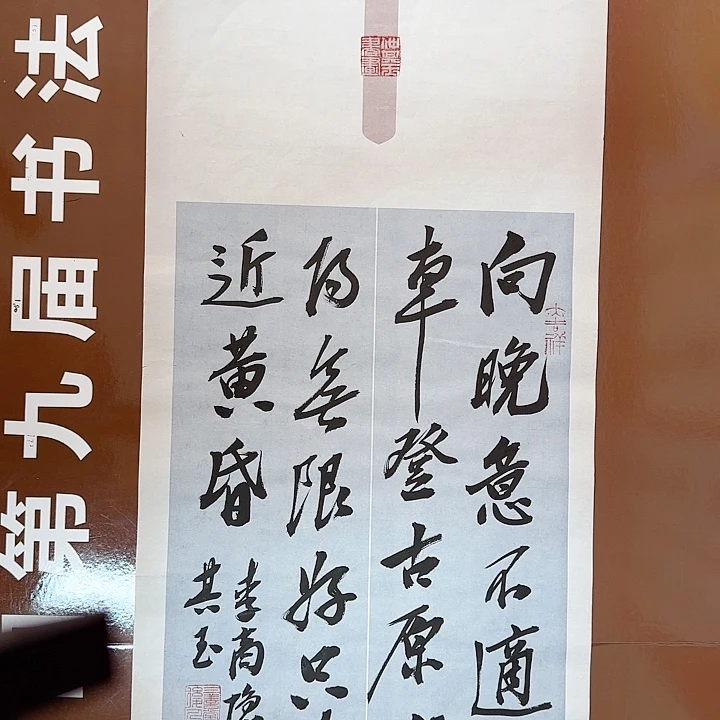 向晚意不適
車登古原
阳無限好只
近黄昏
李商隐
共玉
第九届书法